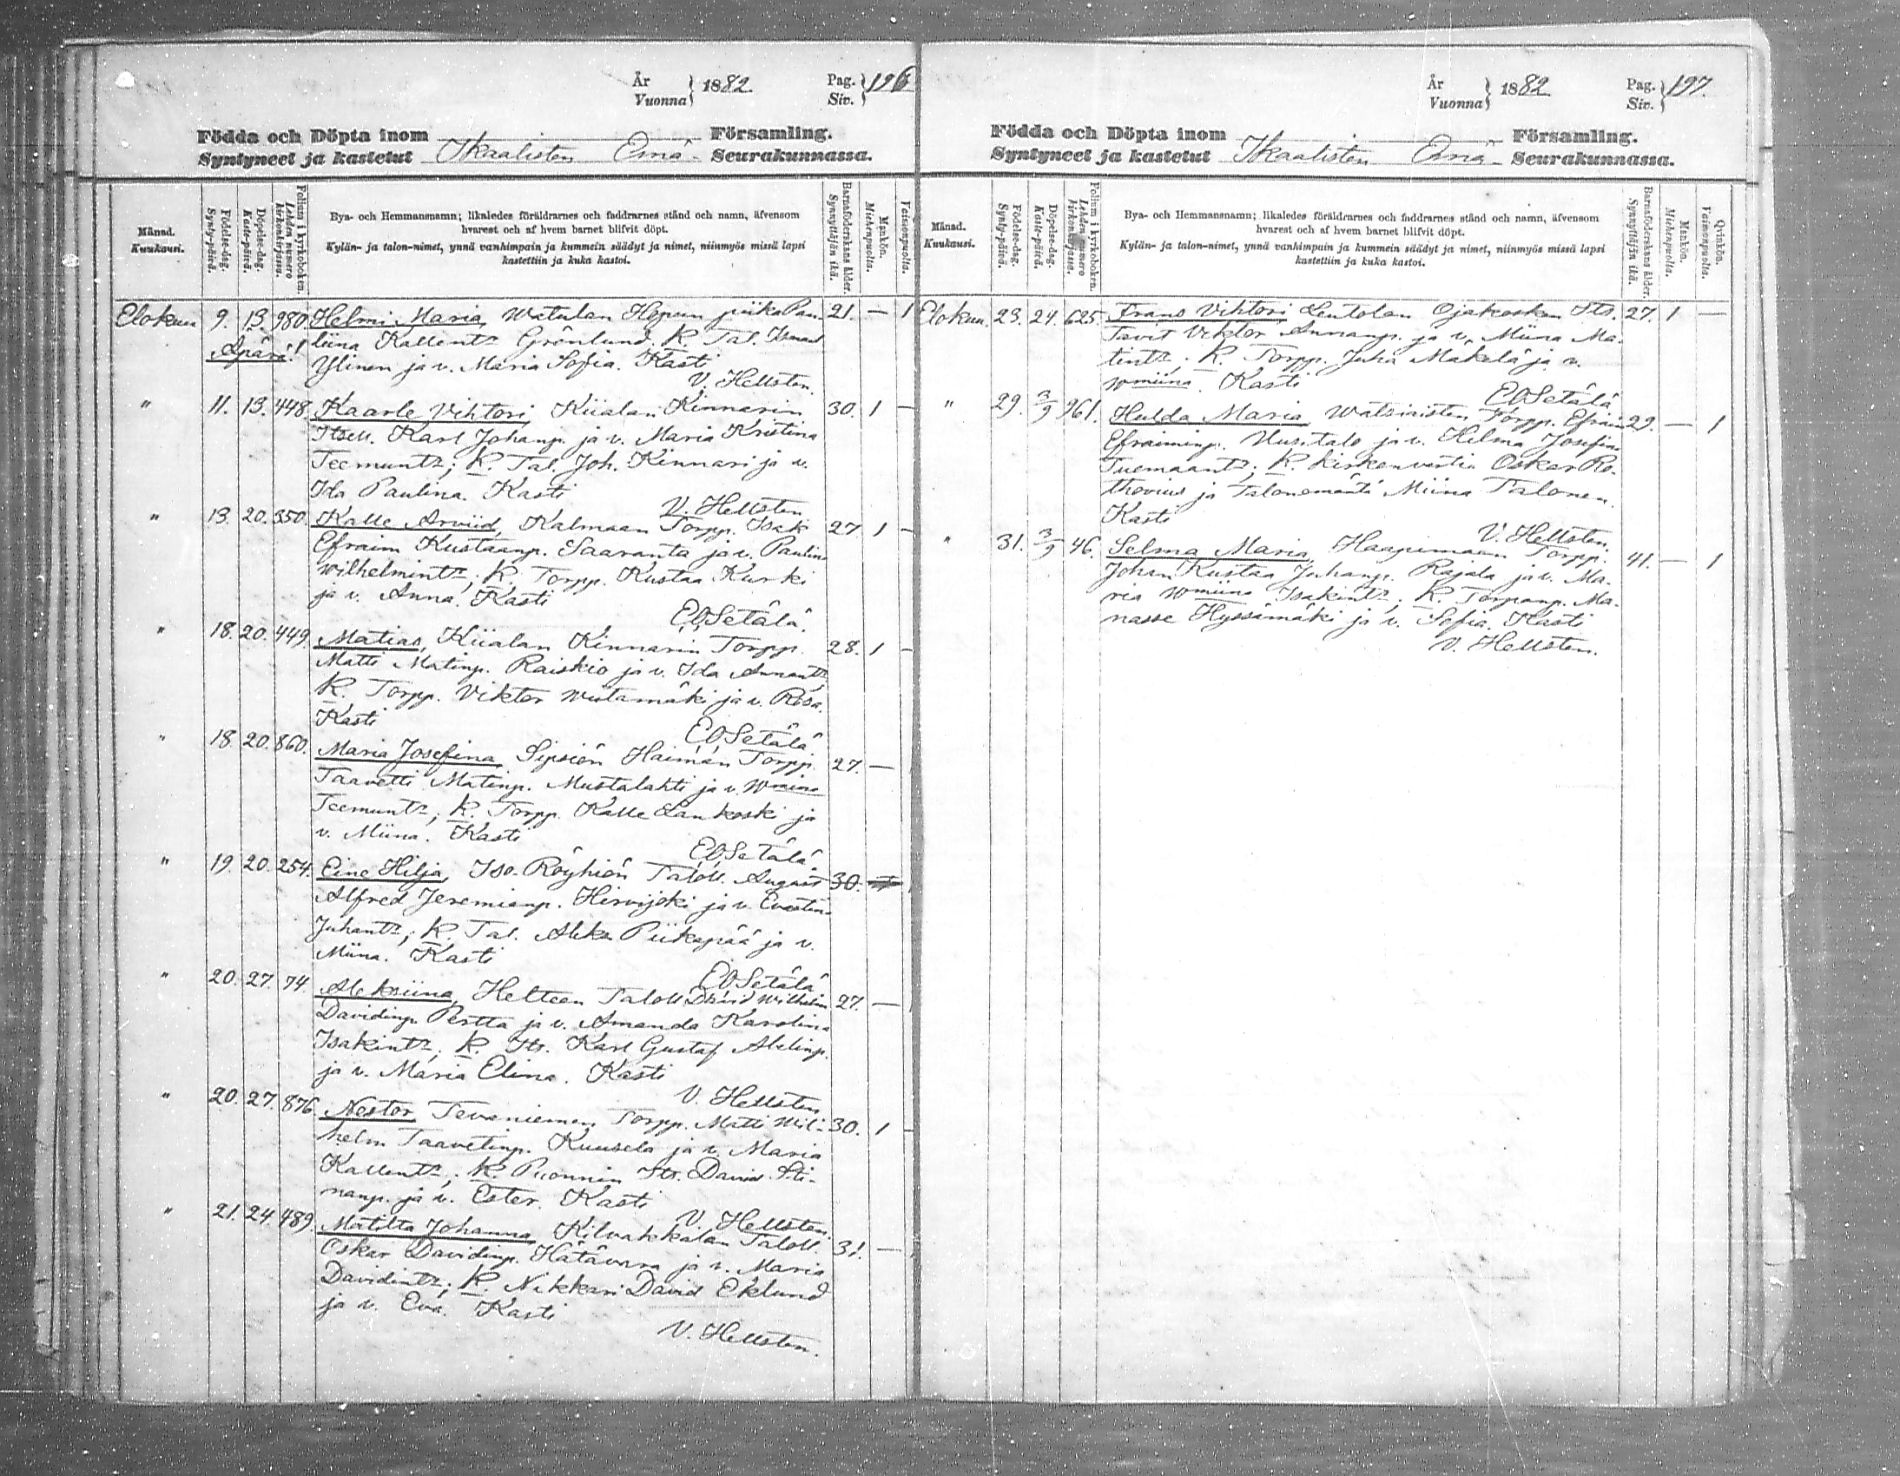 År
Vuonna } 1882 Pag.
Siv. } 196
Födda och Döpta inom Församling.
Syntyneet ja kastetut Ikaalisten Emä- Seurakunnassa.
Månad.
Kuukausi.
Födelse-dag.
Synty-päivä.
Döpelse-dag.
Kaste-päivä.
Folium i kyrkoboken.
Lehden numero kirkonkirjassa.
Bya- och Hemmansnamn; likaledes föräldrarnes och faddrarnes stånd och namn, äfvensom
hvarest och af hvem barnet blifvit döpt.
Kylän- ja talon-nimet, ynnä vanhimpain ja kummein säädyt ja nimet, niinmyös missä lapsi
kastettiin ja kuka kastoi.
Barnaföderskans ålder.
Synnyttäjän ikä.
Mankön.
Miehenpuolia.
Vaimonpuolia.
Elokuu 9. 13. 980. Helmi Maria, Watulan Hepun piika Pau- 21. — 1
Äpärä! liina Kallent. Grönlund; K. Tal.
Ylinen ja v. Maria Sofia. Kasti
V. Hellsten.
" 11. 13. 448. Kaarle Vihtori, Kiialan Kinnarin 30. 1 —
Itsell. Karl Johanp. ja v. Maria Kristina
Teemunt.; K. Tal. Joh. Kinnari ja v.
Ida Paulina. Kasti
V. Hellsten
" 13. 20. 350. Kalle Arviid, Kalmaan Torpp. Isak 27 1 —
Efraim Kustaanp. Saaranta ja v. Paulina
Wilhelmint.; K. Torpp. Kustaa Kurki
ja v. Anna. Kasti
EOSetälä.
" 18. 20. 449. Matias, Kiialan Kinnarin Torpp. 28. 1 —
Matti Matinp. Raiskio ja v. Ida Annant.
K. Torpp. Viktor Wiitamäki ja v. Rosa.
Kasti
EOSetälä.
" 18. 20. 860. Maria Josefina, Sipsiön Haiman Torpp. 27. —
Taavetti Matinp. Mustalahti ja v. Wmiina
Teemunt.; K. Torpp. Kalle Lankoski ja
v. Miina. Kasti
EOSetälä
" 19. 20. 254. Eine Hilja, Iso-Röyhiön Taloll. August 30.
Alfred Jeremianp. Hirvijoki ja v. Evastina
Juhant.; K. Tal. Aleks. Piikapää ja v.
Miina. Kasti
EOSetälä
" 20. 27. 74. Aleksiina, Helteen Taloll. David Wilhelm 27. —
Davidinp. Pertta ja v. Amanda Karolina
Isakint.; K. Its. Karl Gustaf Abelinp.
ja v. Maria Elina. Kasti
V. Hellsten
" 20. 27. 876. Nestor, Tevaniemen Torpp. Matti Wil- 30. 1 —
helm Taavetinp. Kuusela ja v. Maria
Kallent.; K. Its. David Sti-
nanp. ja v. Ester. Kasti
V. Hellsten.
" 21. 24. 489. Matilta Johanna, Kilvakkalan Taloll. 31. —
Oskar Davidinp. Hätävara ja v. Maria
Davidint.; K. Nikkari David Eklund
ja v. Eva. Kasti
V. Hellsten.
År
Vuonna } 1882 Pag.
Siv. } 197.
Födda och Döpta inom Församling.
Syntyneet ja kastetut Ikaalisten Emä- Seurakunnassa.
Månad.
Kuukausi.
Födelse-dag.
Synty-päivä.
Döpelse-dag.
Kaste-päivä.
Folium i kyrkoboken.
Lehden numero kirkonkirjassa.
Bya- och Hemmansnamn; likaledes föräldrarnes och faddrarnes stånd och namn, äfvensom
hvarest och af hvem barnet blifvit döpt.
Kylän- ja talon-nimet, ynnä vanhimpain ja kummein säädyt ja nimet, niinmyös missä lapsi
kastettiin ja kuka kastoi.
Barnaföderskans ålder.
Synnyttäjän ikä.
Mankön.
Miehenpuolia.
Qvinkön.
Vaimonpuolia.
Elokuu. 23. 24. 625. Frans Vihtori, Leutolan Ojakosken Its. 27. 1 —
Tavit Viktor Annanp. ja v. Miina Ma-
tint.; K. Torpp. Juha Mäkelä ja v.
Wmiina. Kasti
EOSetälä
" 29. 3/9 961. Hulda Maria, Watsiaisten Torpp. Efraim 29. — 1
Efraiminp. Uusitalo ja v. Helma Josefina
Tuomaant.; K. kirkonvartia Oskar Ro-
thovius ja Talonemäntä Miina Talonen.
Kasti
V. Hellsten.
" 31. 3/9 46. Selma Maria, Haapimaan Torpp. 41. — 1
Johan Kustaa Juhanp. Rajala ja v. Ma-
ria Wmiina Isakint.; K. Torpanp. Ma-
nasse Hyssämäki ja v. Sofia. Kasti
V. Hellsten.